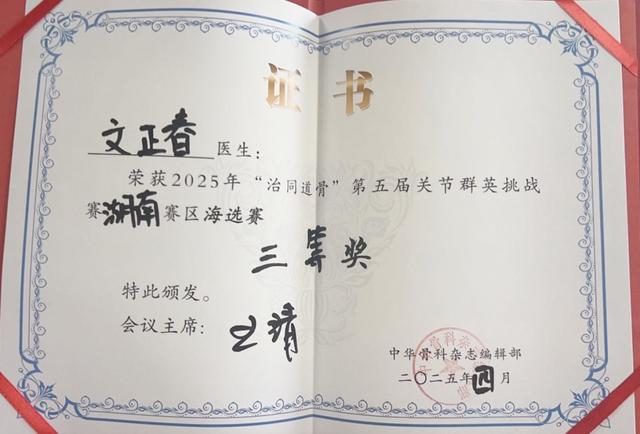 证书
文正春 医生：
荣获2025年“治同道骨”第五届关节群英挑战
赛湖南赛区海选赛
三等奖
特此颁发。
会议主席：王靖
中华骨科杂志编辑部
二〇二五年四月